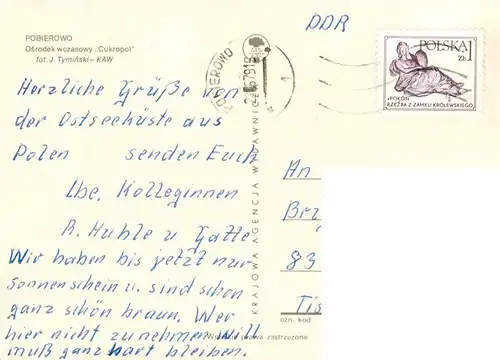 POBIEROWO
Ośrodek wczasowy „Cukropol”
fot. J. Tymiński – KAW
DDR
POBIEROWO
1
POLSKA 1
ZŁ
«POKÓJ»
RZEŹBA Z ZAMKU KRÓLEWSKIEGO
Herzliche Grüße von
der Ostseeküste aus
Polen senden Euch
Lbe. Kolleginnen
R. Huhle u. Gatte
Wir haben bis jetzt nur
Sonnenschein u. sind schon
ganz schön braun. Wer
hier nicht zunehmen will
muß ganz hart bleiben.
KRAJOWA AGENCJA WYDAWNICZA
An
Brz
83
Tis
ozn. kod
prawa zastrzeżone